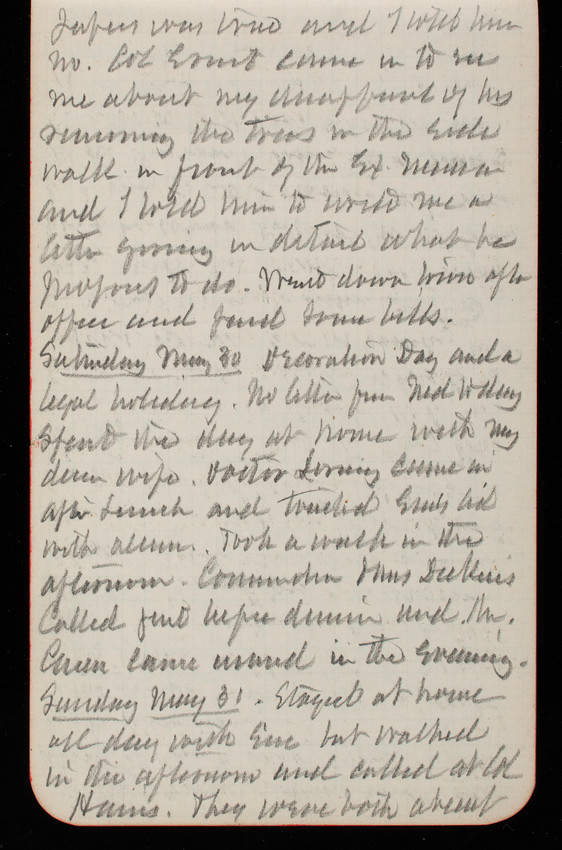 papers was true and I told him
no. Col Ernst came in to see
me about my disapproval of his
removing the trees in the side
walk in front of the Ex. Mansion
and I told him to write me a
letter giving in detail what he
proposes to do. Went down town after
office and paid some bills.
Saturday May 30 Decoration Day and a
legal holiday. No letter from Ned today
Spent the day at home with my
dear wife. Doctor Loring came in
after lunch and touched Eve's lid
with alum. Took a walk in the
afternoon. Commander
Called just before dinner and Mr.
came around in the evening.
Sunday May 31. Stayed at home
all day with Eve but walked
in the afternoon and called at Col
They were both absent